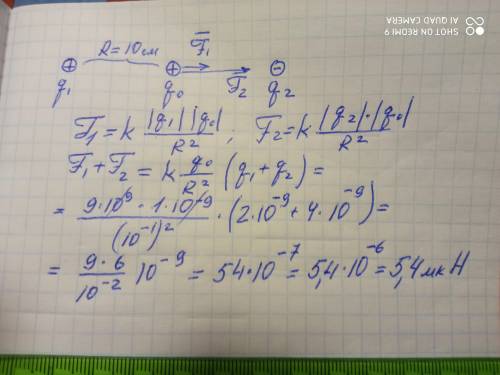 SHOT ON REDMI 9
AI QUAD CAMERA
R = 10 см F̅₁
⊕ ⊕ ⊖
q₁ q₀ F̅₂ q₂
F₁ = k |q₁||q₀| / R² ; F₂ = k |q₂|·|q₀| / R²
F₁ + F₂ = k q₀/R² (q₁ + q₂) =
= 9·10⁹ · 1·10⁻⁹ / (10⁻¹)² · (2·10⁻⁹ + 4·10⁻⁹) =
= 9·6 / 10⁻² 10⁻⁹ = 54·10⁻⁷ = 5,4·10⁻⁶ = 5,4 мкН